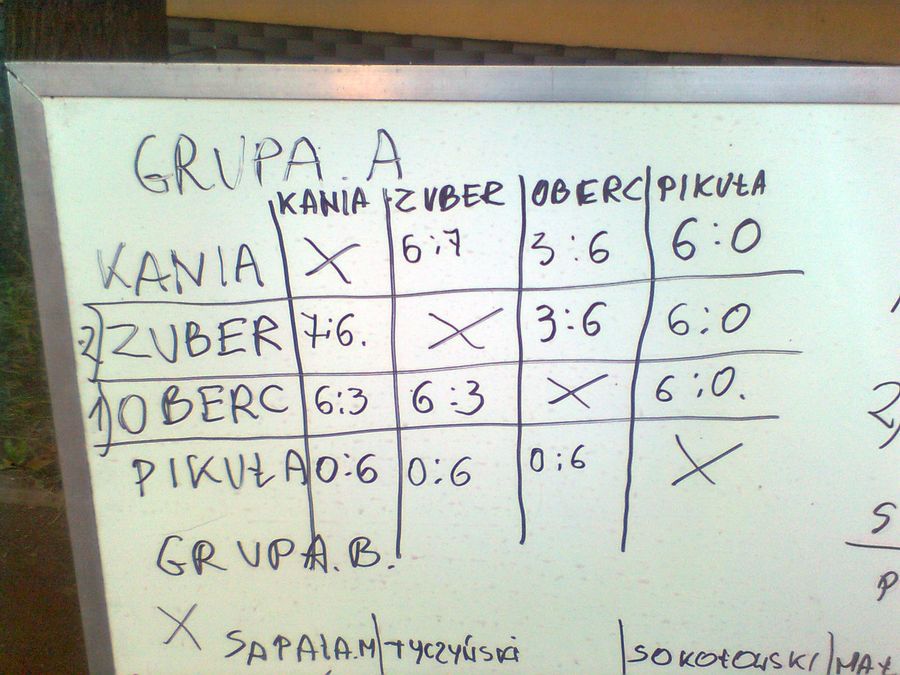 GRUPA. A
KANIA ZUBER OBERC PIKUŁA
KANIA X 6:7 3:6 6:0
2) ZUBER 7:6. X 3:6 6:0
1) OBERC 6:3 6:3 X 6:0.
PIKUŁA 0:6 0:6 0:6 X
GRUPA.B.
X SAPAŁA.M TYCZYŃSKI SOKOŁOWSKI MAŁ
2)
S
P